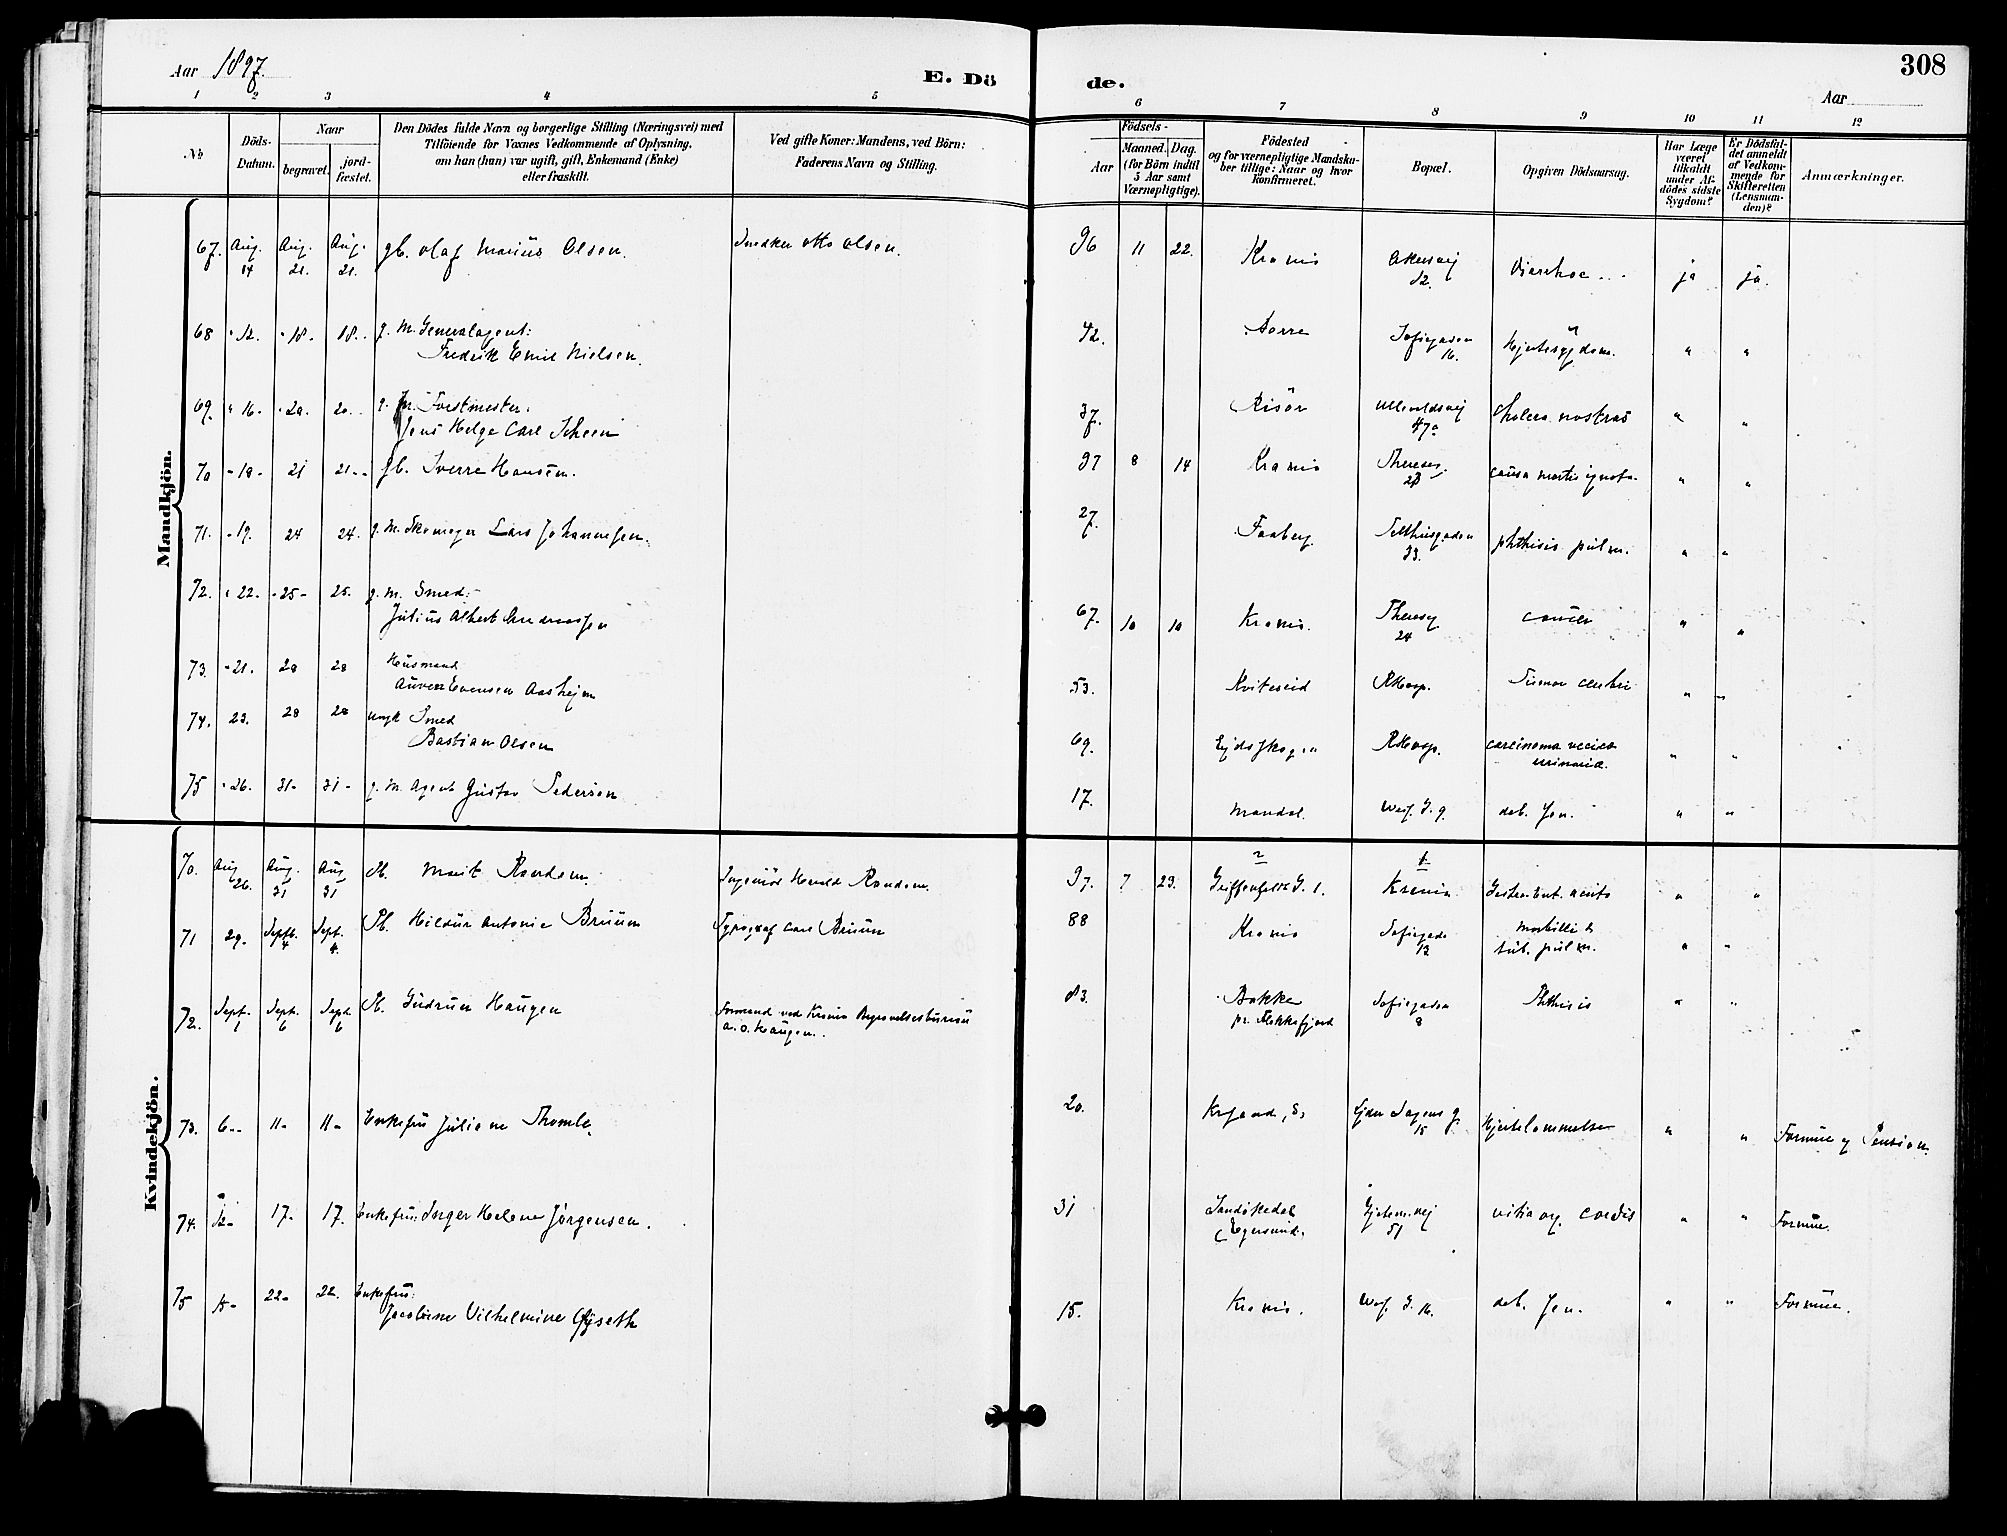 Aar 1897.
E. Dö
de.
308
Aar
1 2 3 4 5 6 7 8 9 10 11 12
No
Döds-Datum.
Naar
begravet.
jord-fæstet.
Den Dödes fulde Navn og borgerlige Stilling (Næringsvei) med
Tilföiende for Voxnes Vedkommende af Oplysning,
om han (hun) var ugift, gift, Enkemand (Enke)
eller fraskilt.
Ved gifte Koner: Mandens, ved Börn:
Faderens Navn og Stilling.
Födsels-
Aar
Maaned. Dag.
(for Börn indtil
5 Aar samt
Værnepligtige).
Födested
og for værnepligtige Mandska-
ber tillige: Naar og hvor
konfirmeret.
Bopæl.
Opgiven Dödsaarsag.
Har Læge
været
tilkaldt
under Af-
dödes sidste
Sygdom?
Er Dödsfal-
det anmeldt
af Vedkom-
mende for
Skifteretten
(Lensman-
den)?
Anmærkninger.
Mandkjön.
67. Aug. 14 Aug. 21. Aug. 21. gb. Olaf Marius Olsen. Snedker Otto Olsen. 96 11 22. Krania Akersvej 52. Diarrhoe ja ja.
68 " 12. " 18. 18. g. m. Generalagent:
Fredrik Emil Nielsen. 42. Sofiegaden 16. Hjertesygdom. " "
69. " 16. " 20. 20. g. m. Forstmester:
Jens Helge Carl Scheen 37. Risör Ullevoldsvej 47a Cholera nostras " "
70 " 19. 21 21. gb. Sverre Hansen. 97 8 14 Krania Thereses. causa mortis ignota " "
71. " 19. 24 24. g. m. Skomager Lars Johannessen. 27. Faaberg. Telthusgaden 33. phthisis pulm. " "
72. " 22. " 25. 25. g. m. Smed:
Julius Albert Andreassen 67. 10 10 Krania. Theresg 24 cancer " "
73. " 21. 28 28 Husmand
Evensen Aasheim 53. Kviteseid RHosp. Tumor cerebri " "
74. 23. 28 28 ungk Smed
Bastian Olsen 69. Ejdsskogen RHosp. carcinoma vesica
urinaria. " "
75 " 26. 31. 31. g. m. Agent Gustav Pedersen 17. Mandal. Wesf. G. 9. deb. sen. " "
Kvindekjön.
70. Aug 26. Aug. 31 Aug 31 Pb. Marit Randem. Ingeniör Harald Randem. 97. 7 23. 2 Griffenfeldts G. 1. 1 Krania Gastro Ent. acuta " "
71 29. Septb. 4 Sept. 4. Pb. Hildur Antonie Bruun Typograf Carl Bruun 88 Krania Sofiegade 12 Morbilli &
tub. pulm. " "
72. Sept. 1 Sept. 6 Sept. 6 Pb. Gudrun Haugen Formand ved Krania Begravelsesbureau
A. O. Haugen. 83. Bakke
pr. Flekkefjord Sofiegaden 8 Phthisis " "
73. 6. 11. 11. Enkefru Juliane Thomle. 20. Krsand, S. Ejder Sagens g. 15 Hjertelammelse " " Formue og Pension.
74. 12. 17. 17. Enkefru: Inger Helene Jörgensen. 31 Egersund. Gjetemvej 51 vitia org. cordis " " Formue.
75 15. 22. 22. Enkefru:
Jacobine Vilhelmine Gjöseth 15. Krania. Wesf. G. 16. deb. sen. " " Formue.